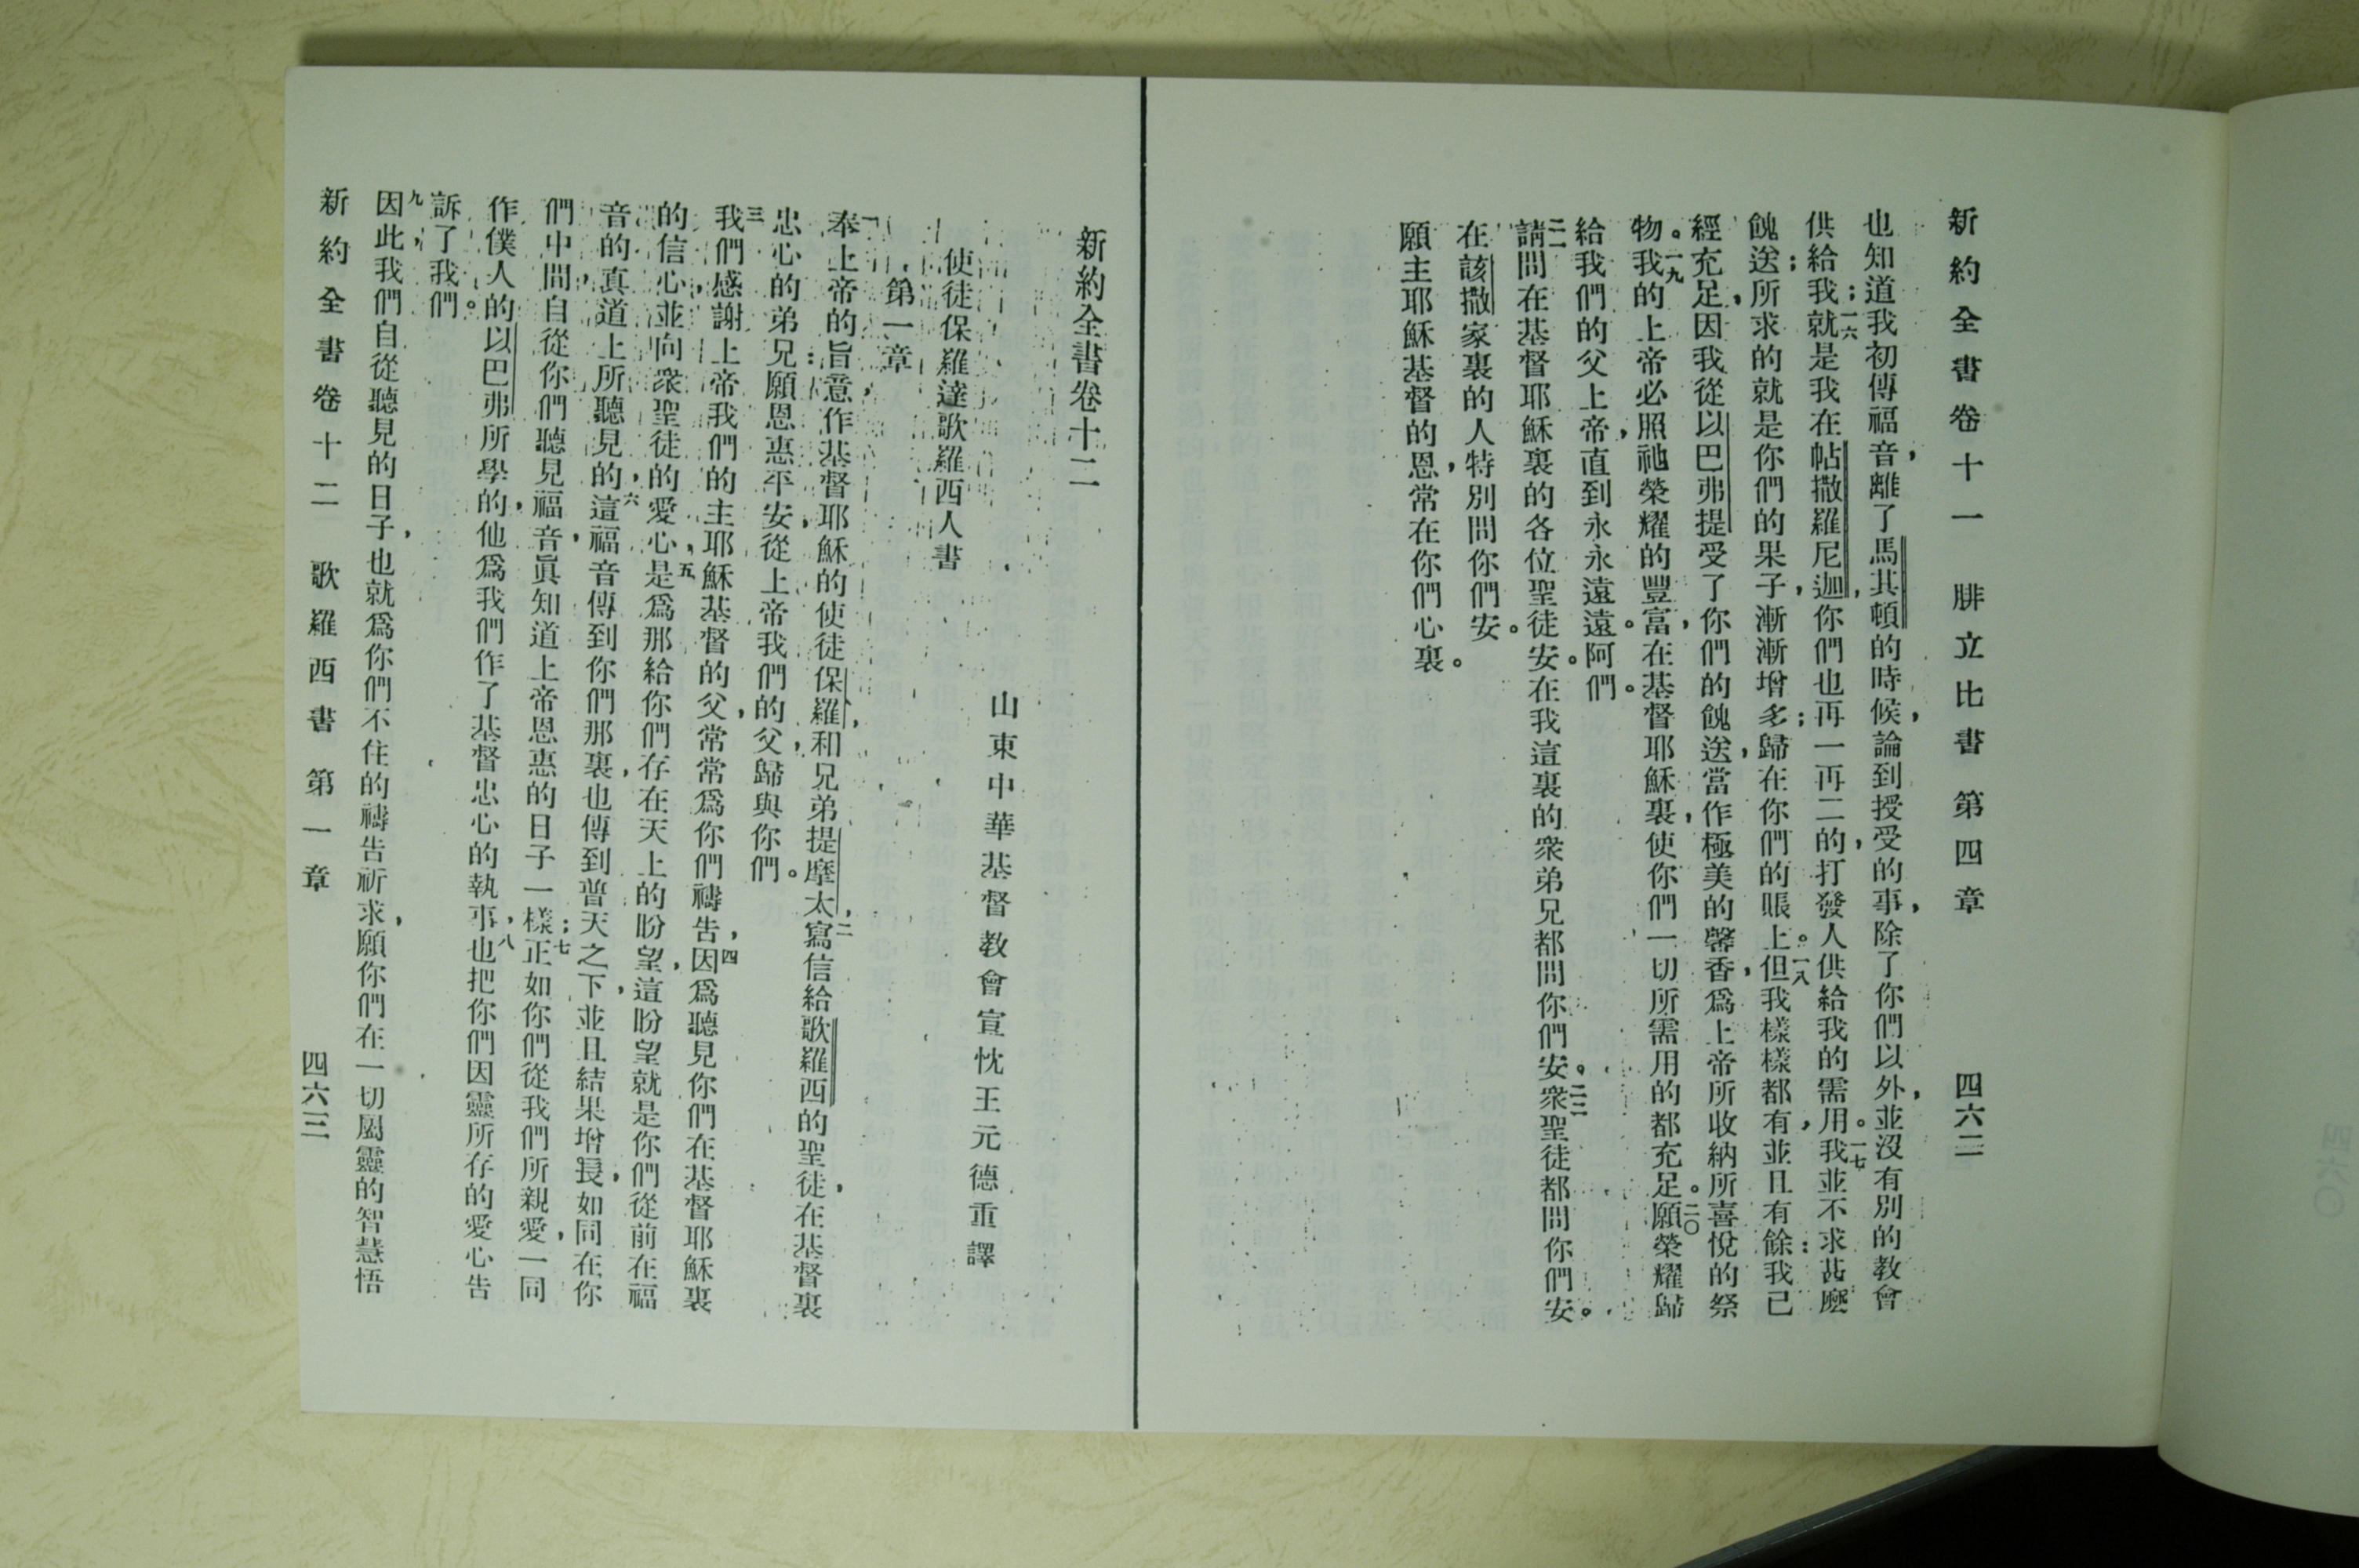 新約全書卷十一 腓立比書 第四章 四六二
也知道我初傳福音，離了馬其頓的時候，論到授受的事，除了你們以外，並沒有別的教會
供給我；一六就是我在帖撒羅尼迦，你們也再一再二的，打發人供給我的需用。一七我並不求甚麼
餽送；所求的就是你們的果子，漸漸增多；歸在你們的賬上。一八但我樣樣都有，並且有餘；我已
經充足，因我從以巴弗提受了你們的餽送，當作極美的馨香，爲上帝所收納所喜悅的祭
物。一九我的上帝，必照祂榮耀的豐富，在基督耶穌裏，使你們一切所需用的都充足。二〇願榮耀歸
給我們的父上帝直到永永遠遠。阿們。
二一請問在基督耶穌裏的各位聖徒安。在我這裏的衆弟兄都問你們安。二二衆聖徒都問你們安。
在該撒家裏的人特別問你們安。
願主耶穌基督的恩，常在你們心裏。
新約全書卷十二
山東中華基督教會宣忱王元德重譯
使徒保羅達歌羅西人書
第一章
一奉上帝的旨意，作基督耶穌的使徒保羅，和兄弟提摩太，二寫信給歌羅西的聖徒，在基督裏
忠心的弟兄：願恩惠平安，從上帝我們的父，歸與你們。
三我們感謝上帝，我們的主耶穌基督的父，常常爲你們禱告，四因爲聽見你們在基督耶穌裏
的信心，並向衆聖徒的愛心，五是爲那給你們存在天上的盼望，這盼望就是你們從前在福
音的真道上所聽見的，六這福音傳到你們那裏，也傳到普天之下，並且結果增長，如同在你
們中間，自從你們聽見福音，眞知道上帝恩惠的日子一樣；七正如你們從我們所親愛，一同
作僕人的以巴弗所學的，他爲我們作了基督忠心的執事，八也把你們因靈所存的愛心告
訴了我們。
九因此，我們自從聽見的日子，也就爲你們不住的禱告祈求，願你們在一切屬靈的智慧悟
新約全書卷十二 歌羅西書 第一章 四六三